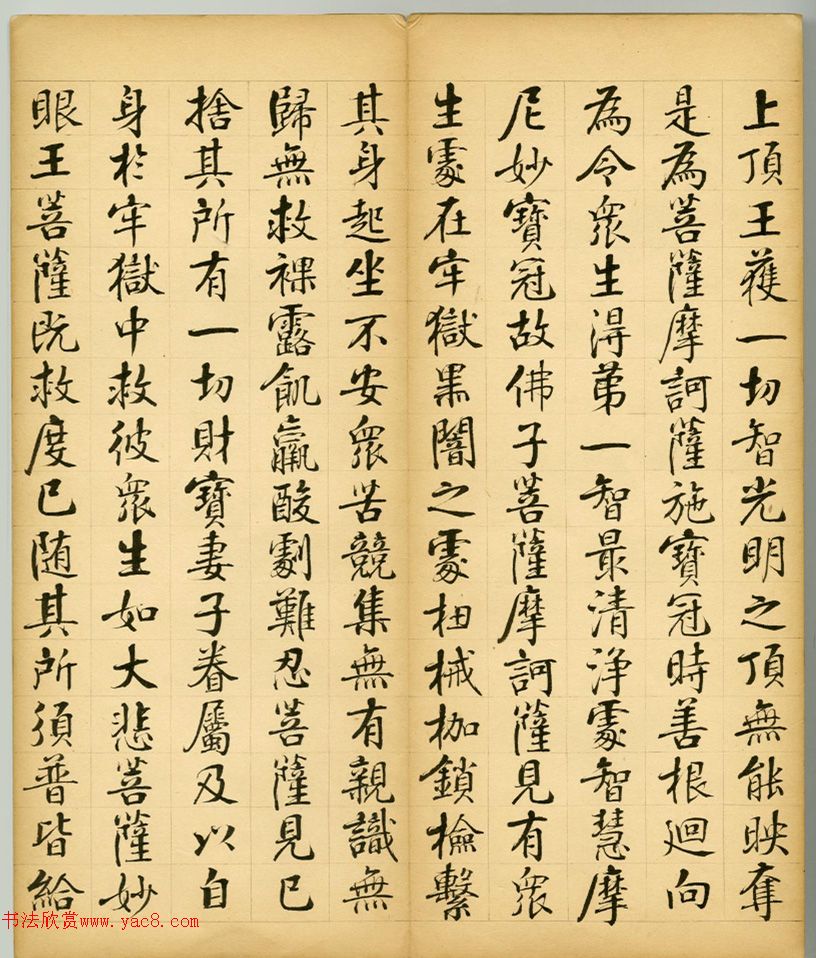 上頂王獲一切智光明之頂無能映奪
是為菩薩摩訶薩施寶冠時善根迴向
為令眾生淂苐一智最清淨處智慧摩
尼妙寶冠故佛子菩薩摩訶薩見有眾
生處在牢獄黑闇之處杻械枷鎖檢繫
其身起坐不安眾苦競集無有親識無
歸無救裸露飢羸酸劇難忍菩薩見已
捨其所有一切財寶妻子眷屬及以自
身於牢獄中救彼眾生如大悲菩薩妙
眼王菩薩既救度已随其所須普皆給
书法欣赏www.yac8.com